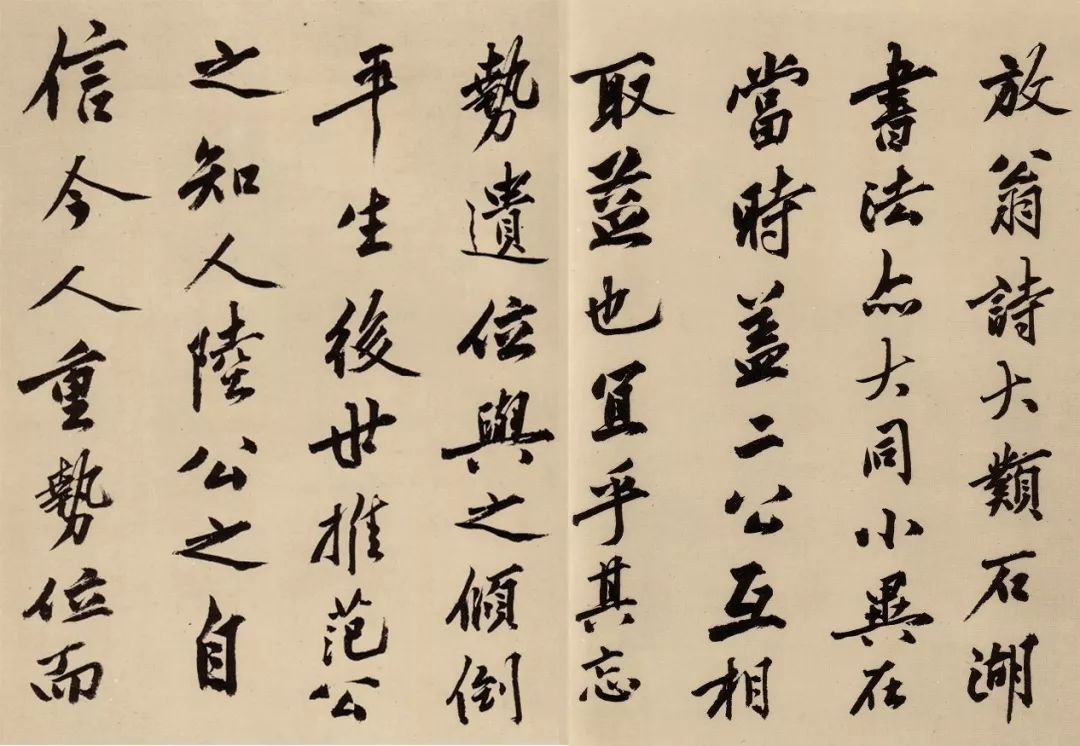 放翁詩大類石湖
書法亦大同小異在
當時蓋二公互相
取益也宜乎其忘
勢遺位與之傾倒
平生後世推范公
之知人陸公之自
信今人重勢位而